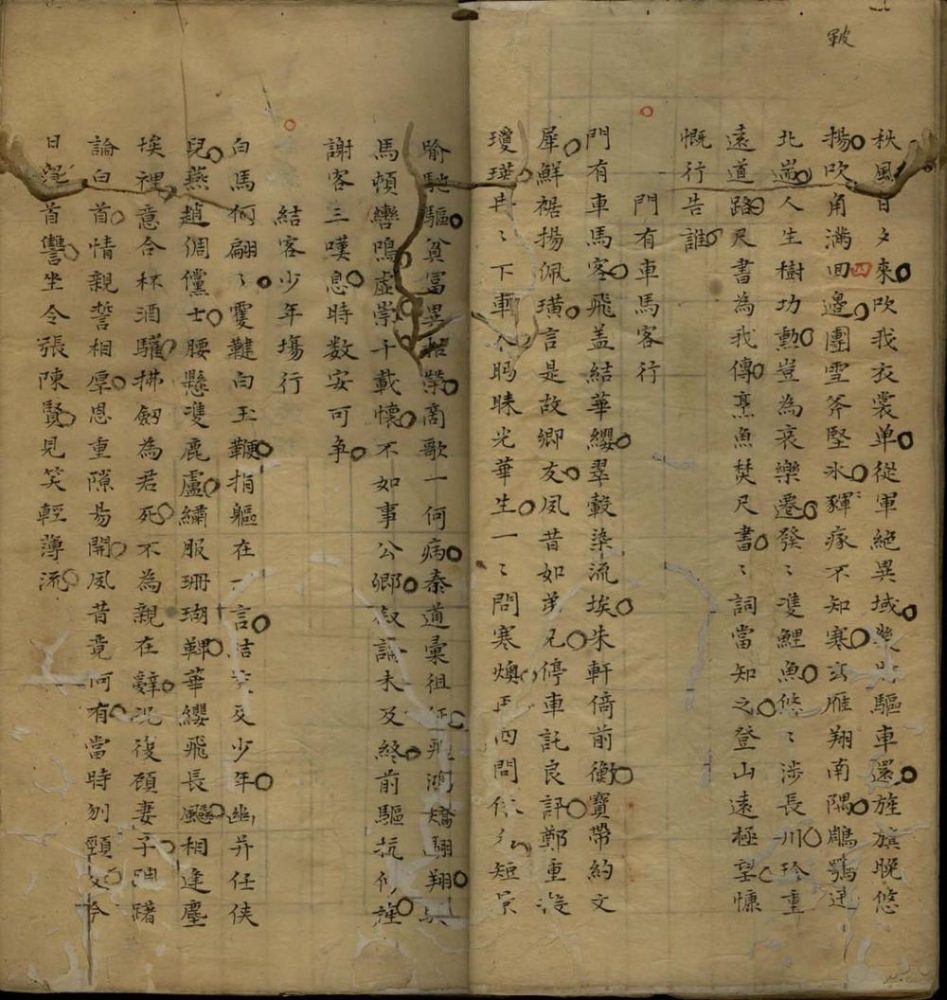 皴
秋風日夕來吹我衣裳单從軍絕異域 驅車還旌旗晚悠
揚吹角滿四邊團雪斧堅冰貚瘃不知寒 雁翔南隅鵰鶚逆
北耑人生樹功勲豈為哀樂遷發〻雙鯉魚悠〻涉長川珍重
遠道路尺書為我傳烹魚焚尺書〻詞當知之登山遠極望慷
慨行告誰
門有車馬客行
門有車馬客飛盖結華纓翠轂染流埃朱軒倚前衡寶帶約文
犀鮮裾揚佩璜言是故鄉友夙昔如弟兄停車託良訊鄭重
瓊 冉〻下 眄昧光華生一〻問寒燠再四問 短
喻馳驅貧富異 榮啇歌一何病泰道彙徂 飛鴻矯翮翔
馬頓轡鳴虛 千載懷不如事公卿叙論未及終前驅抗修
謝客三嘆息時数安可争
結客少年塲行
白馬何翩〻 鞬白玉鞭捐軀在一言結 交少年幽并任俠
兒燕趙倜儻士腰懸雙鹿盧繡服珊瑚 華纓飛長飈相逢塵
埃裡意合杯酒驩拂劒為君死不為親在辭况復顧妻子 躇
論白首情親誓相厚恩重隙易開夙昔竟何有當時刎頸 今
日 首讐坐令張陳賢見笑輕薄流